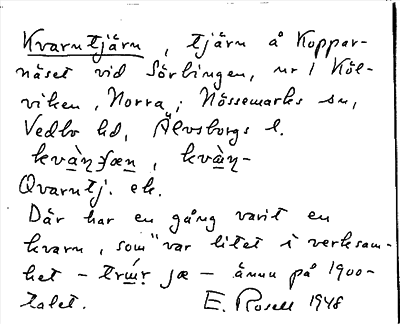 Kvarntjärn, tjärn å Koppar-
näset vid Sörlingen, nr 1 Köl-
viken, Norra; Nössemarks sn,
Vedbo hd, Älvsborgs l.
kvàꞃ , kvàꞃ-
Qvarntj. ek.
Där har en gång varit en
kvarn, som "var litet i verksam-
het - - ännu på 1900-
talet. E. Rosell 1948